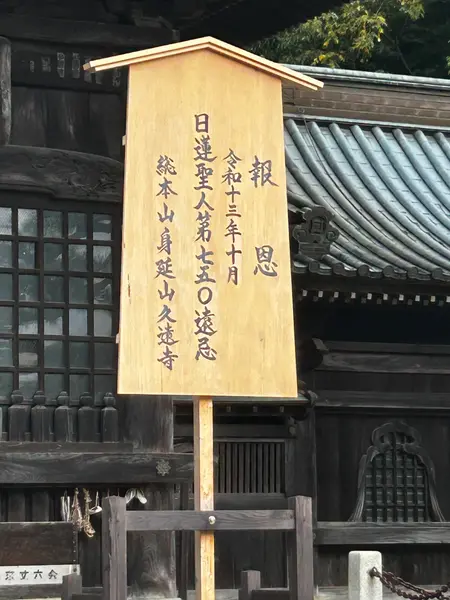 報恩
令和十三年十月
日蓮聖人第七五〇遠忌
総本山身延山久遠寺